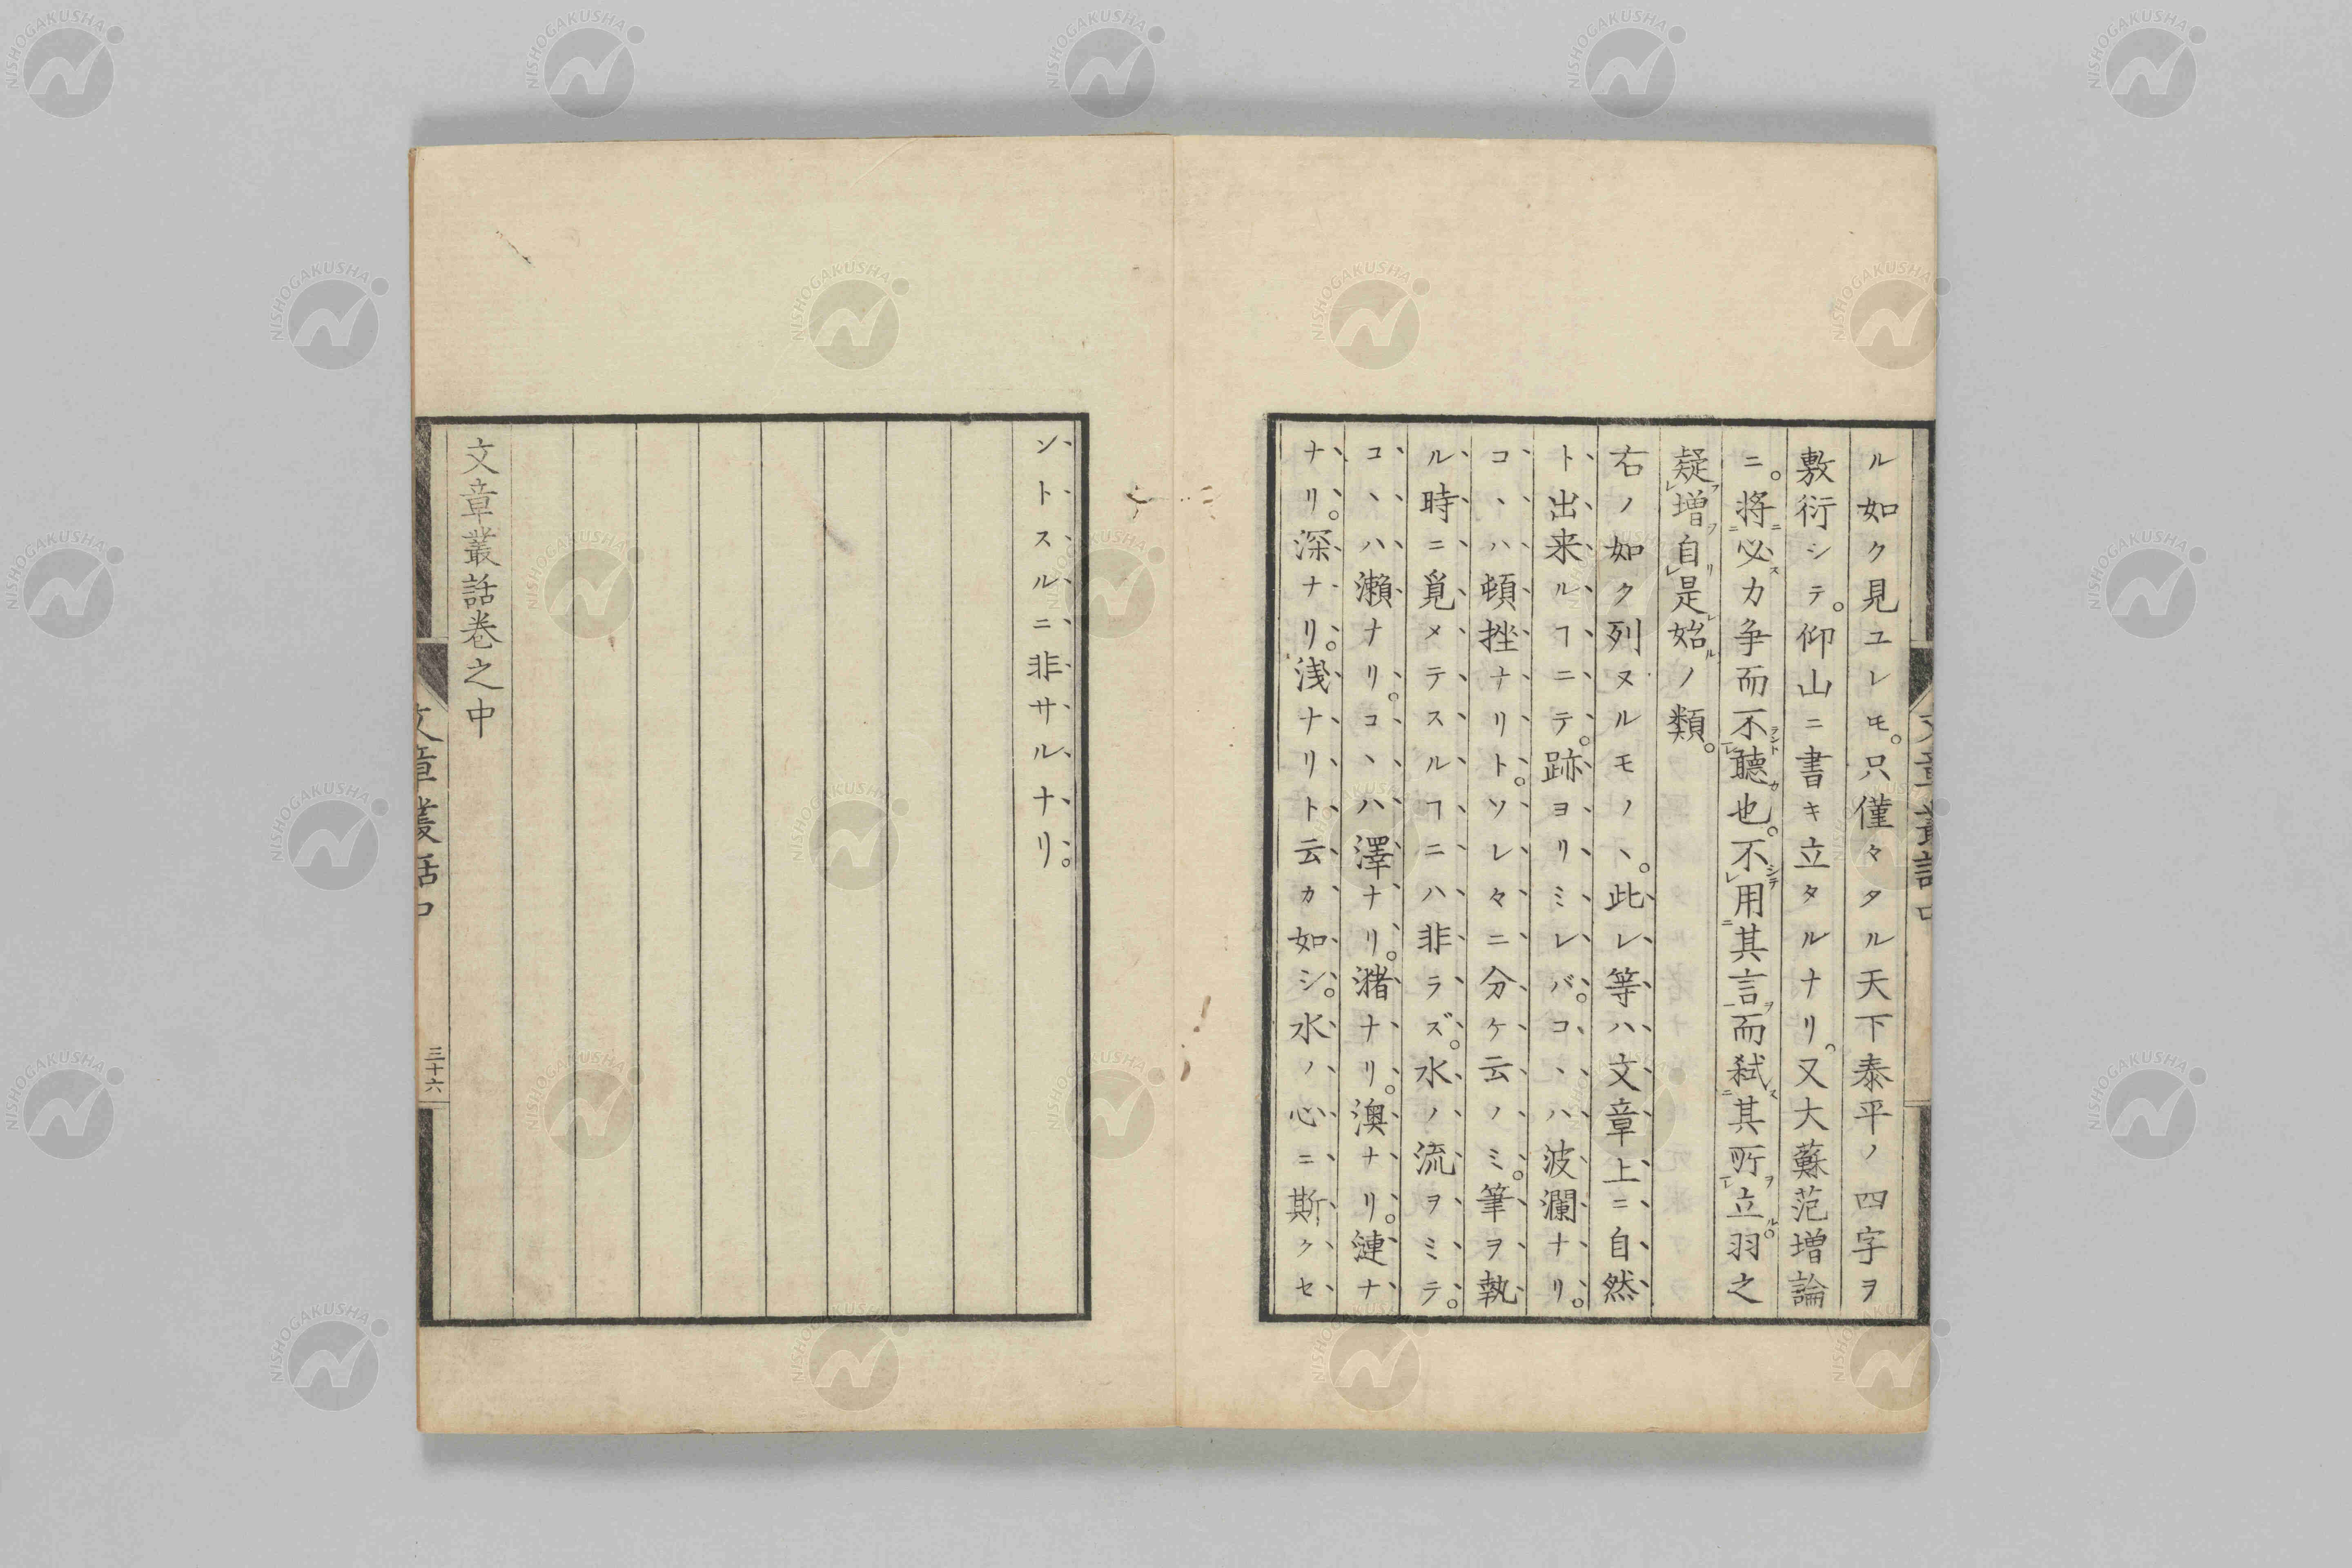 ル如ク見ユレ𪜈。只僅々タル天下泰平ノ四字ヲ
敷衍シテ。仰山ニ書キ立タルナリ。又大蘇范増論
ニ。将必力争而不聴也。不用其言而弑其所立。羽之
疑増自是始ノ類。
右ノ如ク列ヌルモノヽ。此レ等ハ文章上ニ自然
ト出来ルヿニテ。跡ヨリミレバ。コヽハ波瀾ナリ。
コヽハ頓挫ナリト。ソレ々ニ分ケ云ノミ。筆ヲ執
ル時ニ覓メテスルヿニハ非ラズ。水ノ流ヲミテ。
コヽハ瀬ナリ。コヽハ澤ナリ。瀦ナリ。澳ナリ。漣ナ
ナリ。深ナリ。浅ナリト云カ如シ。水ノ心ニ斯クセ
ントスルニ非サルナリ。
文章叢話巻之中
文章叢話中
三十六
NISHOGAKUSHA